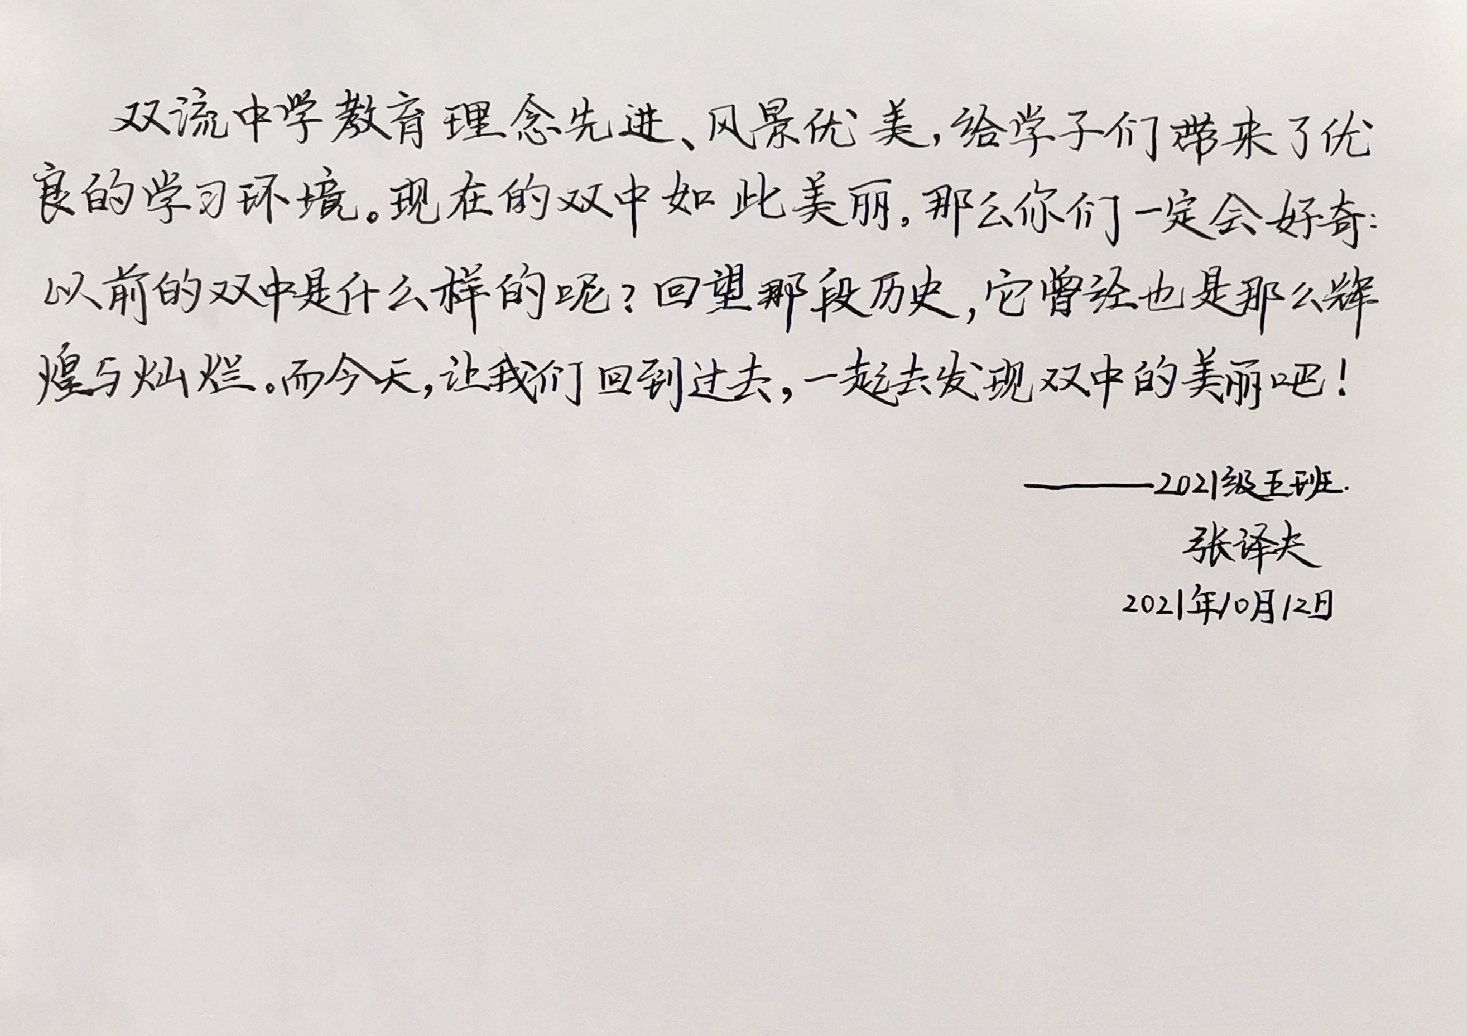 双流中学教育理念先进、风景优美，给学子们带来了优
良的学习环境。现在的双中如此美丽，那么你们一定会好奇：
以前的双中是什么样的呢？回望那段历史，它曾经也是那么辉
煌与灿烂。而今天，让我们回到过去，一起去发现双中的美丽吧！
——2021级五班.
张译夫
2021年10月12日